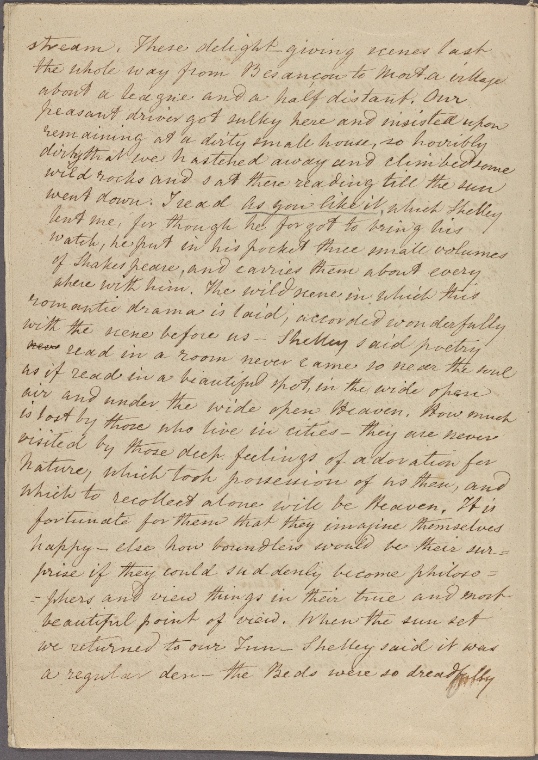 stream. These delight-giving scenes last
the whole way from Besancon to Mort a village
about a league and a half distant. Our
peasant driver got sulky here and insisted upon
remaining at a dirty small house, so horribly
dirty that we hastened away and climbed some
wild rocks and sat there reading till the sun
went down. I read As you like it, which Shelley
lent me, for though he forgot to bring his
watch, he put in his pocket three small volumes
of Shakespeare, and carries them about every
where with him. The wild scene in which this
romantic drama is laid, accorded wonderfully
with the scene before us – Shelley said poetry
read in a room never came so near the soul
as if read in a beautiful spot, in the wide open
air and under the wide open Heaven. How much
is lost by those who live in cities – they are never
visited by those deep feelings of adoration for
Nature, which took possession of us then, and
which to recollect alone will be Heaven. It is
fortunate for them that they imagine themselves
happy – else how boundless would be their sur=
prise if they could suddenly become philoso=
-phers and view things in their true and most
beautiful point of view. When the sun set
we returned to our Inn – Shelley said it was
a regular den – the Beds were so dreadfully